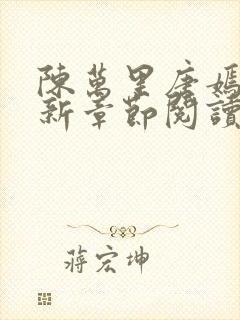 陳萬里唐嫣
新章節閱讀
蔣宏坤